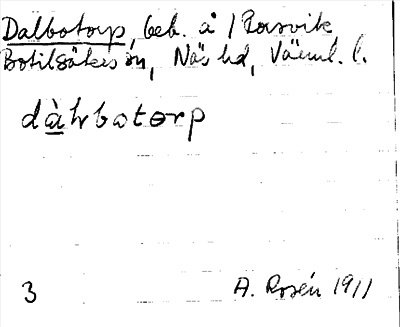 Dalbotorp, beb. å / Rosvik,
Botilsäters sn, Näs hd, Värml. l.
dàlrbotorp
3 A. Rosén 1911